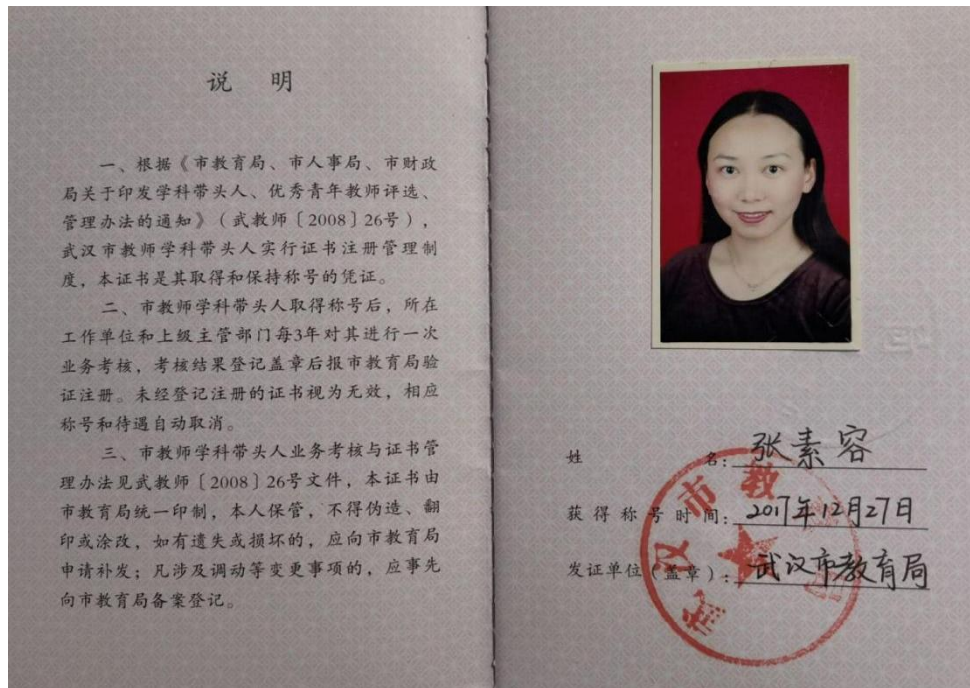 说 明
一、根据《市教育局、市人事局、市财政
局关于印发学科带头人、优秀青年教师评选、
管理办法的通知》(武教师〔2008〕26号),
武汉市教师学科带头人实行证书注册管理制
度,本证书是其取得和保持称号的凭证。
二、市教师学科带头人取得称号后,所在
工作单位和上级主管部门每3年对其进行一次
业务考核,考核结果登记盖章后报市教育局验
证注册。未经登记注册的证书视为无效,相应
称号和待遇自动取消。
三、市教师学科带头人业务考核与证书管
理办法见武教师〔2008〕26号文件,本证书由
市教育局统一印制,本人保管,不得伪造、翻
印或涂改,如有遗失或损坏的,应向市教育局
申请补发;凡涉及调动等变更事项的,应事先
向市教育局备案登记。
姓 名:张素容
获得称号时间:2017年12月27日
发证单位(盖章):武汉市教育局
武汉市教育局